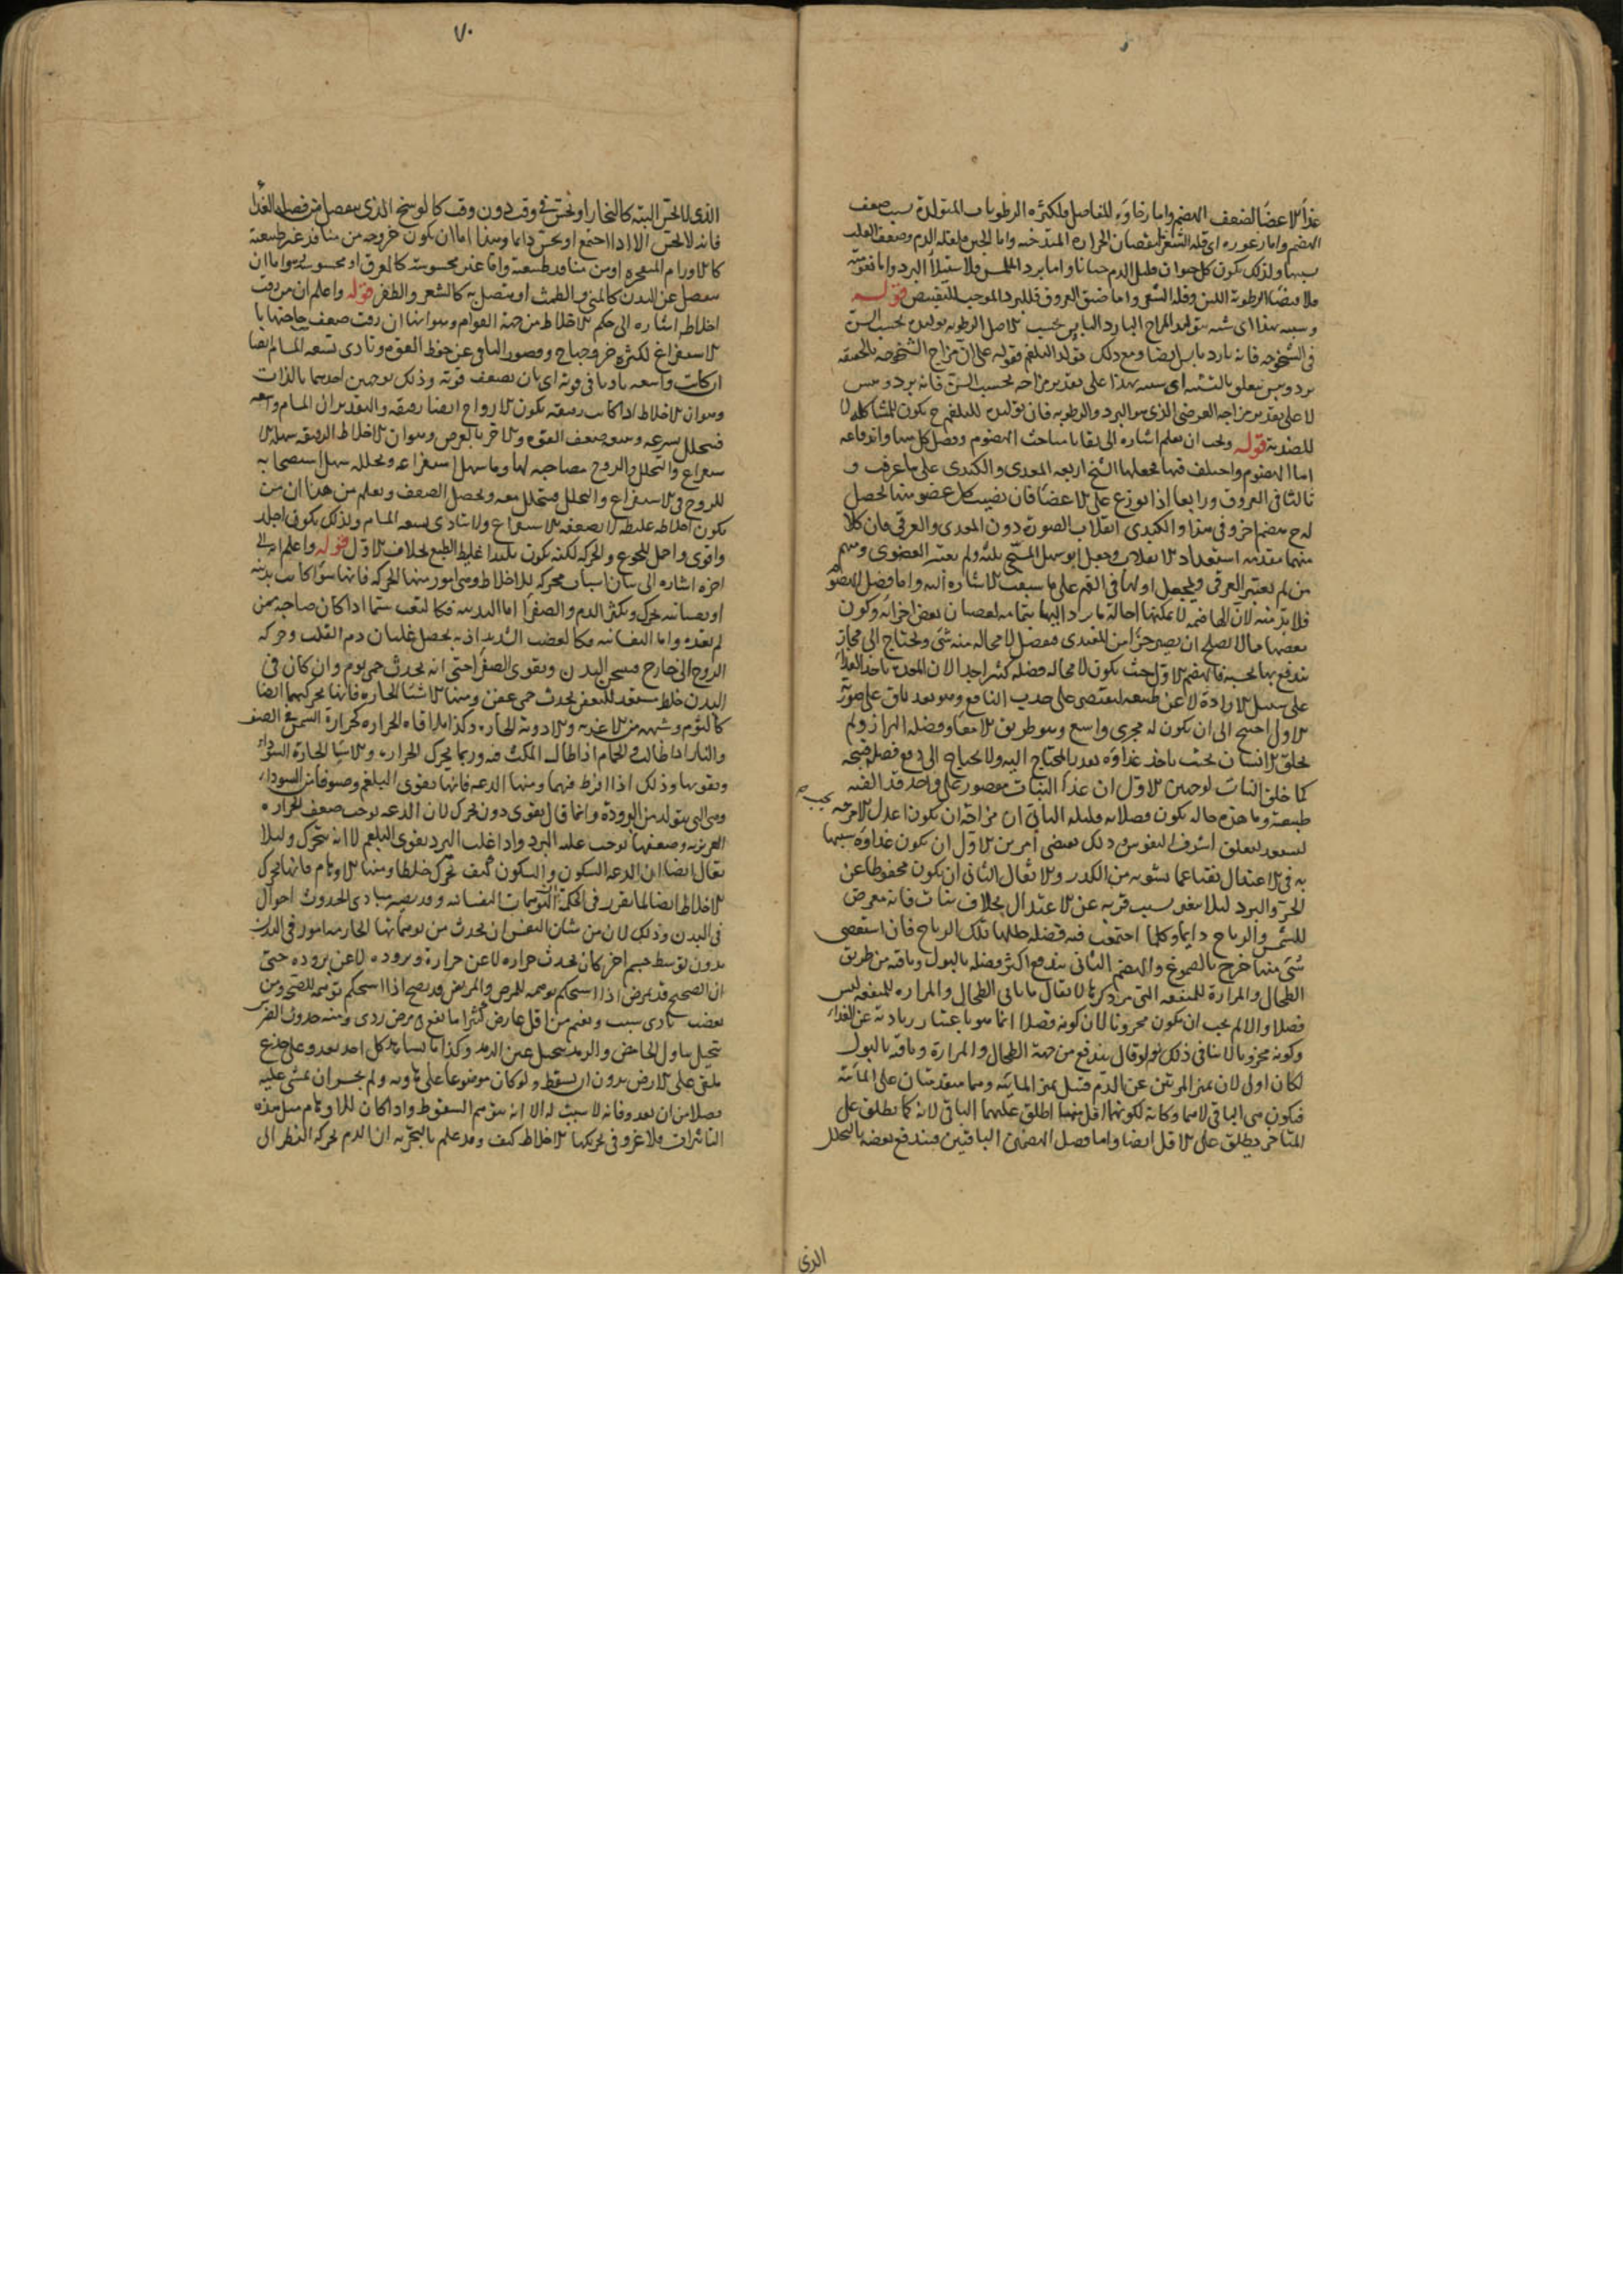 غذا الاعضا لضعف الهضم واما رخاوة المفاصل فلكثرة الرطوبات المتولدة بسبب ضعف
الهضم واما زعوره اى قلة الشعر فلنقصان الحرارة المتدخنة واما الجبن فلقلة الدم وضعف القلب
بسببها ولذلك يكون كل حيوان قليل الدم جبانا واما برد الملمس فلاستيلاء البرد واما نعومته
فلاقتضا الرطوبة اللين وقلة الشعر واما ضيق العروق فللبرد الموجب للتقبيض قوله
وسببه هذا اى شبه بتولد المزاج البارد اليابس بحسب الاصل الرطوبة تولده بحسب السن
فى الشيخوخة فانه بارد يابس ايضا ومع ذلك يتولد البلغم فقوله على ان مزاج الشيخوخة بالحقيقة
برد ويبس يتعلق بالتشبه اى سببه هذا على تقدير مزاجه بحسب السن فانه برد ويبس
لا على تقدير مزاجه العرضى الذى هو البرد والرطوبة فان توليده للبلغم ح يكون للمشاكلة لا
للضدية قوله ويجب ان تعلم اشارة الى بقايا مباحث الهضوم وفضل كل منها واندفاعه
اما الهضوم واختلف فيها فجعلها الشيخ اربعة المعدى والكبدى على ما عرفت و
ثالثا فى العروق ورابعا اذا توزع على الاعضا فان نصيب كل عضو منها يحصل
له ح هضم اخر وفى هذا والكبدى انقلاب الصورة دون المعدى والعرقى فان كلا
منهما مقدمة استعداد الانقلاب وجعل ابو سهل المسيحى ثلثة ولم يعتبر العضوى ومنهم
من لم يعتبر العرقى ويجعل اولها فى الفم على ما سبقت الاشارة اليه واما فضل الهضوم
فلا بد منه لان الهاضمة لا يمكنها احالة ما يرد اليها بتمامه لعصيان بعض اجزائه وكون
بعضها مما لا يصلح ان يصير جزأ من المغتذى فيفضل لا محالة منه شى ويحتاج الى مجار
يندفع بها بحسبه فالهضم الاول حيث يكون لا محالة فضله كثيرا جدا لان المعدة تاخذ الغذا
على سبيل الارادة لا عن طبيعة لتقتصر على جذب النافع وهو بعد باق على صورته
الاولى احتيج الى ان يكون له مجرى واسع وهو طريق الامعا وفضله البراز ولم
يخلق الانسان بحيث ياخذ غذاوه بقدر المحتاج اليه ولا يحتاج الى دفع فضل قبيحة
كما خلق النبات لوجهين الاول ان غذا النبات مقصور على واحد قد الفته
طبيعته وما هذه حاله يكون فضلاته قليلة الثانى ان مزاجه يجب ان يكون اعدل الامزجة
ليستعد لتعلق اشرف النفوس وذلك يقتضى امرين الاول ان يكون غذاوه شبيها
به فى الاعتدال نقيا عما يشوبه من الكدر والاثقال الثانى ان يكون محفوظا عن
الحر والبرد ليلا يتغير بسبب قربه عن الاعتدال بخلاف النبات فانه معرض
للشمس والرياح دايما وكلما اجتمعت فيه فضلة حللتها تلك الرياح فان استعصى
شى منها خرج بالصموغ والهضم الثانى يندفع اكثر فضله بالبول وباقيه من طريق
الطحال والمرارة للمنفعة التى مر ذكرها لا يقال ما ياتى الطحال والمرارة للمنفعة ليس
فضلا والا لم يجب ان يكون محزونا لان كونه فضلا انما هو باعتبار زيادته عن الغذا
وكونه مخزونا لا ينافى ذلك ولو قال يندفع من جهة الطحال والمرارة وباقيه بالبول
لكان اولى لان تميز المرتين عن الدم قبل تميز المايية وهما متقدمتان على المايية
فيكون هى الباقى لا هما وكانه لكونهما اقل منها اطلق عليهما الباقى لانه كما يطلق على
المتاخر يطلق على الاقل ايضا واما فضل الهضمين الباقيين فيندفع بعضه بالتحلل
الذى
٧٠
الذى لا يحس البتة كالبخار او يحس فى وقت دون وقت كالوسخ الذى ينفصل من فضل الغذا
فانه لا يحس الا اذا اجتمع او يحس دايما وهذا اما ان يكون خروجه من منافذ غير طبيعية
كالاورام المنفجرة او من منافذ طبيعية واما غير محسوسة كالعرق او محسوسة وهو اما ان
ينفصل عن البدن كالمنى والطمث او يتصل به كالشعر والظفر قوله واعلم ان من رقت
اخلاطه اشارة الى حكم الاخلاط من جهة القوام وهو انها ان رقت ضعف صاحبها با
لاستفراغ لكثرة خروجها ح وقصور الباقى عن حفظ القوة وتاذى بسعة المسام ايضا
ان كانت واسعة تاذيا فى قوته اى بان يضعف قوته وذلك لوجهين احدهما بالذات
وهو ان الاخلاط اذا كانت رقيقة يكون الارواح ايضا رقيقة والتقدير ان المسام واسعة
فيتحلل بسرعة وهو مضعف القوة والاخر بالعرض وهو ان الاخلاط الرقيقة سهلة الا
ستفراغ والتحلل والروح مصاحبة لها وما سهل استفراغه وتحلله سهل استصحابه
للروح فى الاستفراغ والتحلل فيتحلل معه ويحصل الضعف ويعلم من هذا ان من
يكون اخلاطه غليظة لا يضعفه الاستفراغ ولا يتاذى بسعة المسام ولذلك يكون اجلد
واقوى واحمل للجوع والحركة لكنه يكون بليدا غليظ الطبع بخلاف الاول قوله واعلم انه الى
اخره اشارة الى بيان اسباب محركة للاخلاط وهى امور منها الحركة فانها سوا كانت بدنية
او نفسانية تحرك وتكثر الدم والصفرا اما البدنية فكالتعب سيما اذا كان صاحبه ممن
لم يعتده واما النفسانية فكالغضب الشديد اذ به يحصل غليان دم القلب وحركة
الروح الى خارج فيسخن البدن ويقوى الصفرا حتى انه يحدث حمى يوم وان كان فى
البدن خلط مستعد للتعفن يحدث حمى عفن ومنها الاشيا الحارة فانها تحركهما ايضا
كالثوم وشبهه من الاغذية والادوية الحارة وكذا ملاقاة الحرارة كحرارة الشمس فى الصيف
والنار اذا طالت والحمام اذا طال المكث فيه وربما يحرك الحرارة والاشيا الحارة السودا
ويقويها وذلك اذا افرط فيهما ومنها الدعة فانها تقوى البلغم وصنوفا من السودا
وهى التى يتولد من البرودة وانما قال يقوى دون يحرك لان الدعة توجب ضعف الحرارة
الغريزية وضعفها يوجب غلبة البرد واذا غلب البرد يقوى البلغم لا انه يتحرك وليلا
يقال ايضا ان الدعة السكون والسكون كيف تحرك خلطا ومنها الاوهام فانها تحرك
الاخلاط ايضا لما تقرر فى الحكمة ان التوهمات النفسانية قد يصير مبادى لحدوث احوال
فى البدن وذلك لان من شان النفس ان يحدث من توهماتها الجازمة امور فى البدن
بدون توسط جسم اخر كان يحدث حرارة لا عن حرارة وبرودة لا عن برودة حتى
ان الصحيح قد يمرض اذا استحكم توهمه للمرض والمريض قد يصح اذا استحكم توهمه للصحة ومن
يغضب بادى سبب ويغتم من اقل عارض كثيرا ما يقع فى مرض ردى ومنه حدوث الضرس
بتخيل تناول الحامض والرمد بتخيل عين الرمد وكذا ما يشاهد كل احد يعدو على جذع
ملقى على الارض بدون ان يسقط ولو كان موضوعا على هاوية ولم يجسر ان يمشى عليه
فضلا من ان يعدو فانه لا سبب له الا انه يتوهم السقوط واذا كان للاوهام مثل هذه
التاثيرات فلا غرو فى تحريكها الاخلاط كيف وقد علم بالتجربة ان الدم تحركه النظر الى